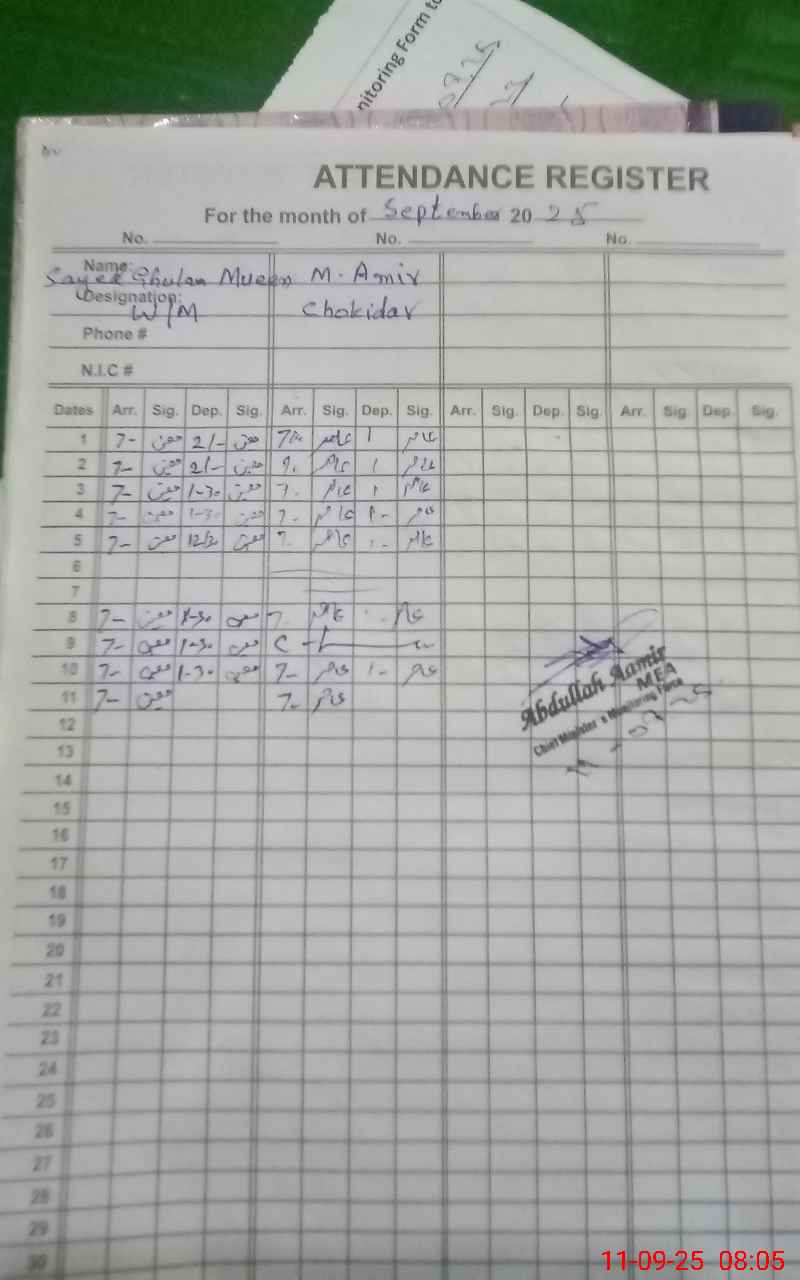 nitoring Form to
ATTENDANCE REGISTER
For the month of September 20 25
No. No. No.
Name: Sayed Ghulam Mueen M. Amir
Designation: W/M Chokidar
Phone #
N.I.C #
Dates Arr. Sig. Dep. Sig. Arr. Sig. Dep. Sig. Arr. Sig. Dep. Sig. Arr. Sig. Dep. Sig.
1 7- معین 2/- معین 7 عامر 1 عامر
2 7- معین 2/- معین 7. عامر 1 عامر
3 7- معین 1-30 معین 7. عامر 1 عامر
4 7- معین 1-30 معین 7. عامر 1- عامر
5 7- معین معین 7. عامر عامر
6
7
8 7- معین معین 7. عامر عامر
9 7- معین 1-30 معین C
10 7- معین 1-30 معین 7- عامر 1- عامر
11 7- معین 7- عامر
Abdullah Aamir
MEA
Chief Minister's Monitoring Force
12
13
14
15
16
17
18
19
20
21
22
23
24
25
26
27
28
29
30
11-09-25 08:05